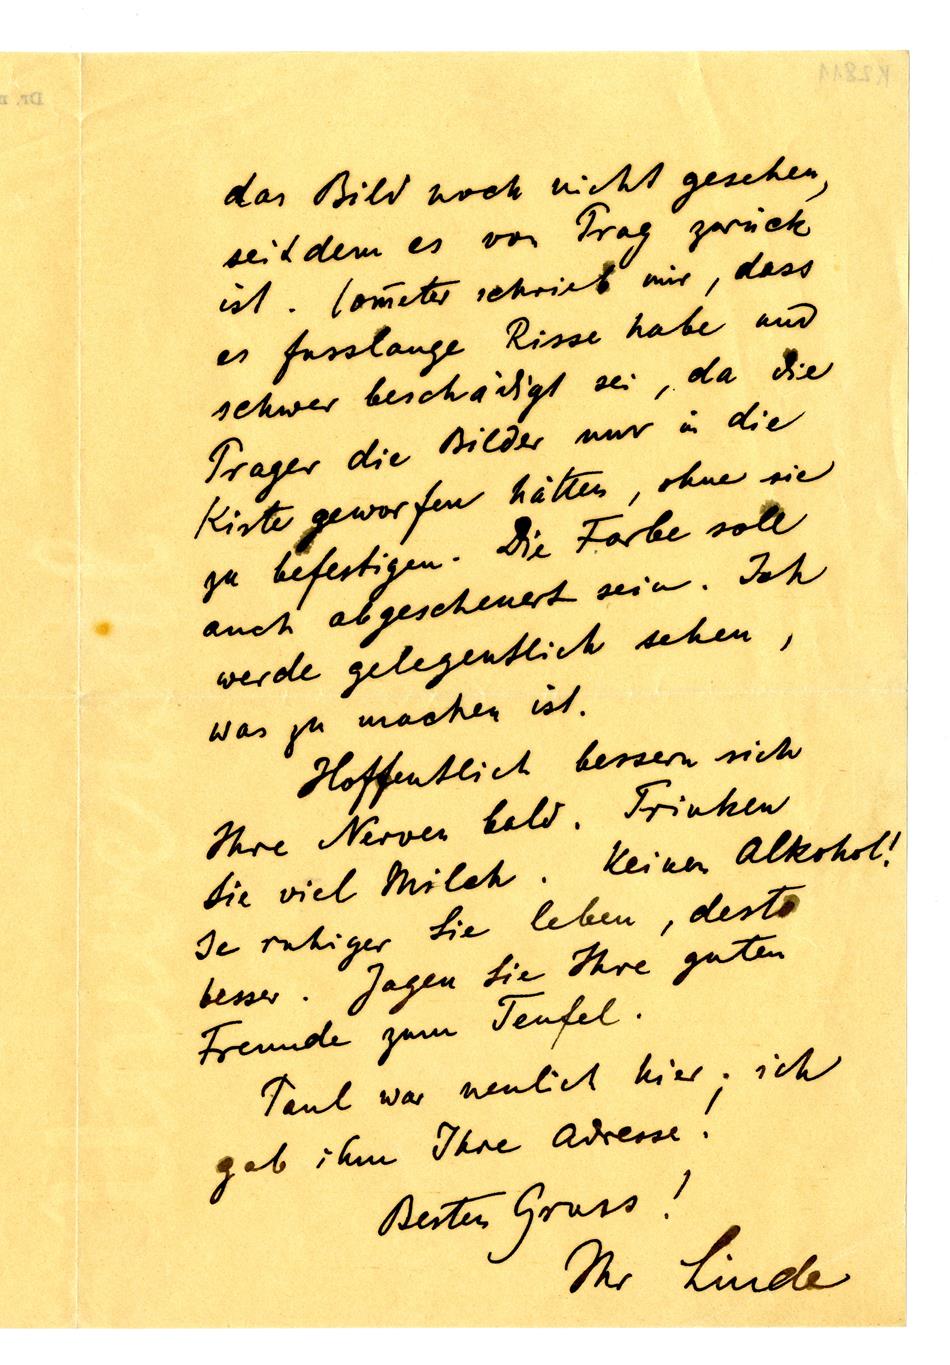 K2811
Dr. m
das Bild noch nicht gesehen,
seitdem es von Prag zurück
ist. Commeter schrieb mir, dass
es fusslange Risse habe und
schwer beschädigt sei, da die
Prager die Bilder nur in die
Kiste geworfen hätten, ohne sie
zu befestigen. Die Farbe soll
auch abgescheuert sein. Ich
werde gelegentlich sehen,
was zu machen ist.
Hoffentlich bessern sich
Ihre Nerven bald. Trinken
Sie viel Milch. Keinen Alkohol!
Je ruhiger Sie leben, desto
besser. Jagen Sie Ihre guten
Freunde zum Teufel.
Paul war neulich hier; ich
gab ihm Ihre Adresse!
Besten Gruss!
Ihr Linde